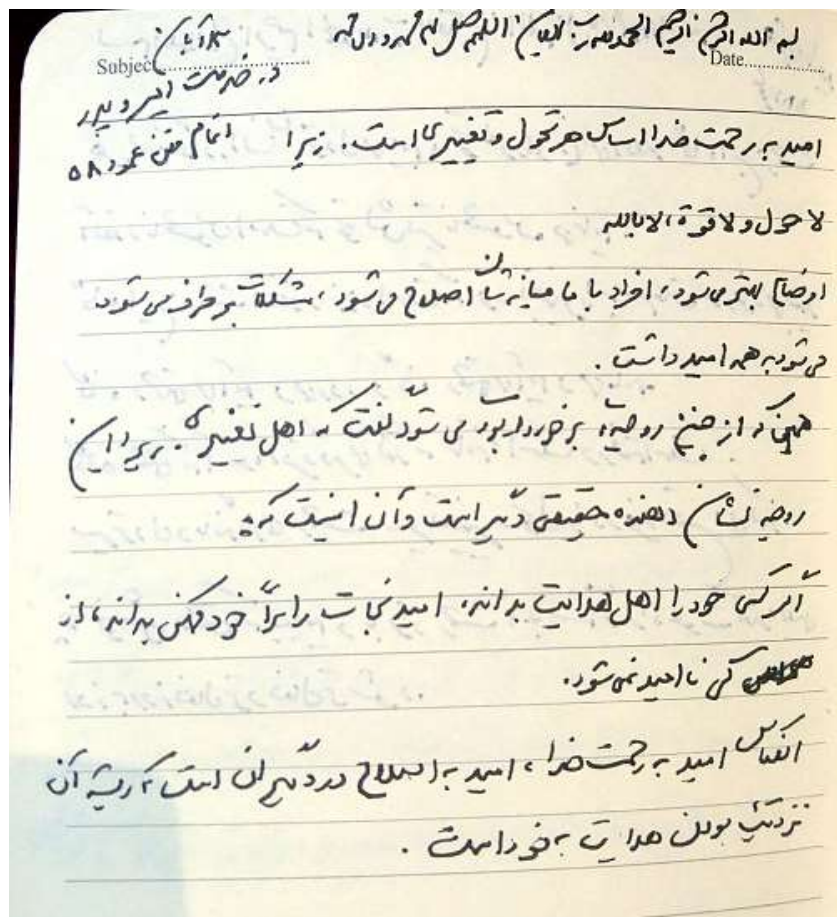 بسم الله الرحمن الرحیم الحمدلله رب العالمین اللهم صل علی محمد و آل محمد
Subject 13 آبان
Date
در خدمت امیر و پدر
امید به رحمت خدا اساس هر تحول و تغییری است. زیرا
اتمام متن عمود 58
لا حول و لا قوة الا بالله
اوضاع بهتر می‌شود، افراد با ما میانه‌شان اصلاح می‌شود، مشکلات برطرف می‌شود
می‌شود به همه امید داشت.
همین که از چنین روحیه‌ای برخوردار بود می‌شود گفت که اهل تغییری. زیرا این
روحیه نشان دهنده حقیقتی دیگر است و آن اینست که:
اگر کسی خود را اهل هدایت بداند، امید نجات را برای خود ممکن بداند، از
کسی ناامید نمی‌شود.
انعکاس امید به رحمت خدا، امید به اصلاح در دیگران است که ریشه آن
نزدیک بودن هدایت به خود است.